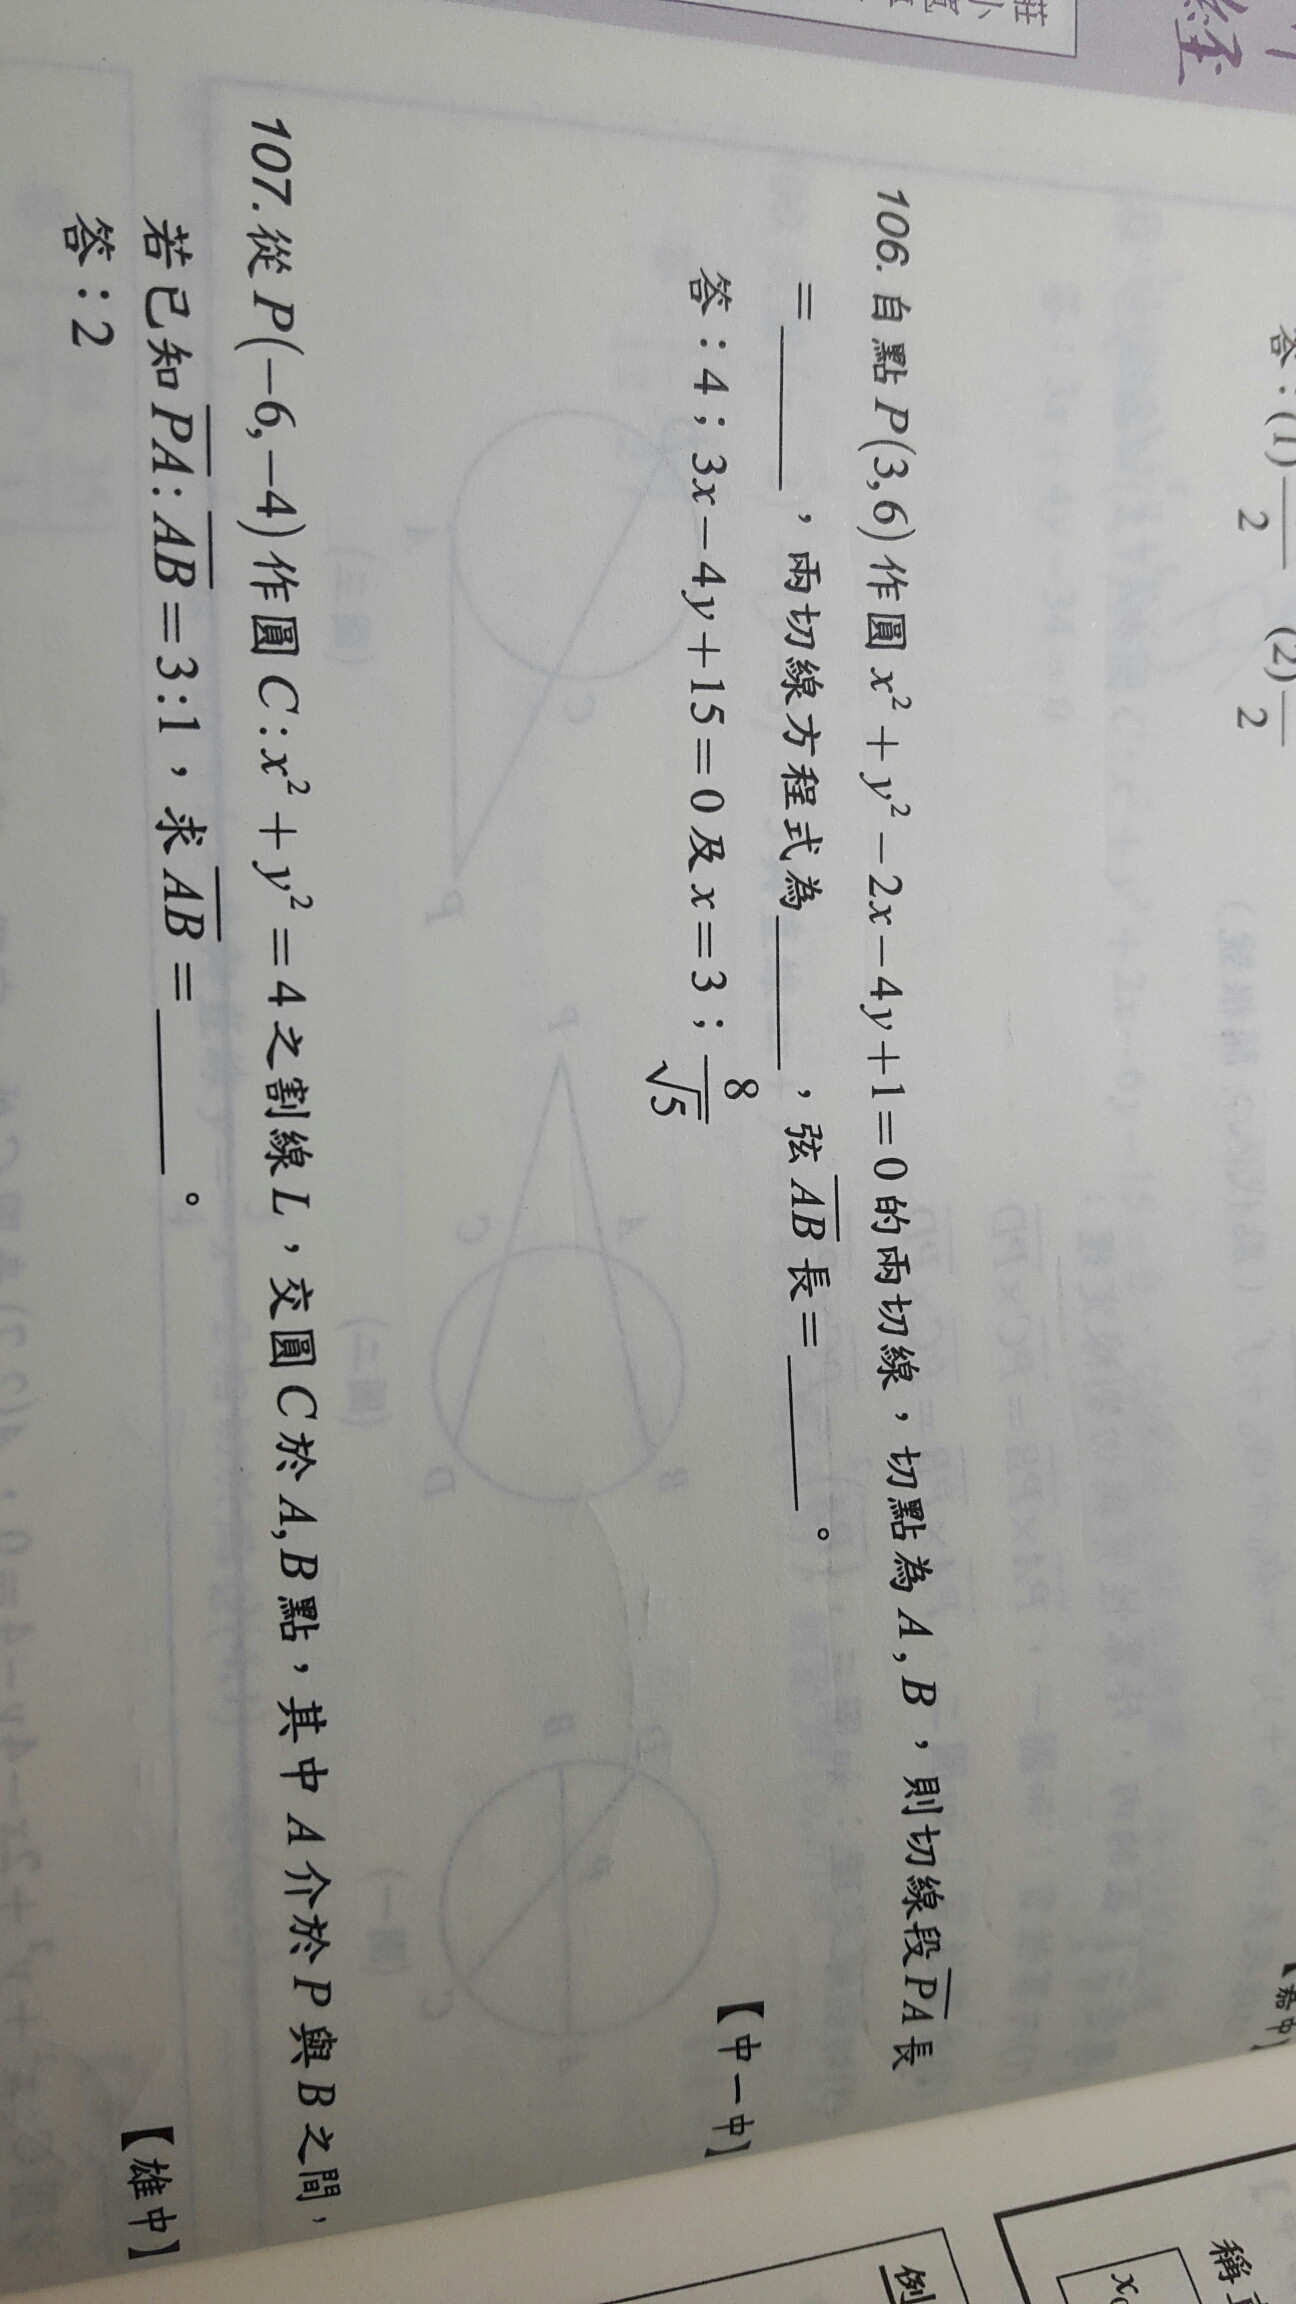 經
答：(1) ─/2 (2) ─/2
106. 自點 P(3,6) 作圓 x² + y² − 2x − 4y + 1 = 0 的兩切線，切點為 A, B，則切線段 \overline{PA} 長
= ______，兩切線方程式為______，弦 \overline{AB} 長 = ______。
【中一中】
答：4；3x − 4y + 15 = 0 及 x = 3；8/√5
107. 從 P(−6,−4) 作圓 C: x² + y² = 4 之割線 L，交圓 C 於 A, B 點，其中 A 介於 P 與 B 之間，
若已知 \overline{PA} : \overline{AB} = 3:1，求 \overline{AB} = ______。
【雄中】
答：2
例